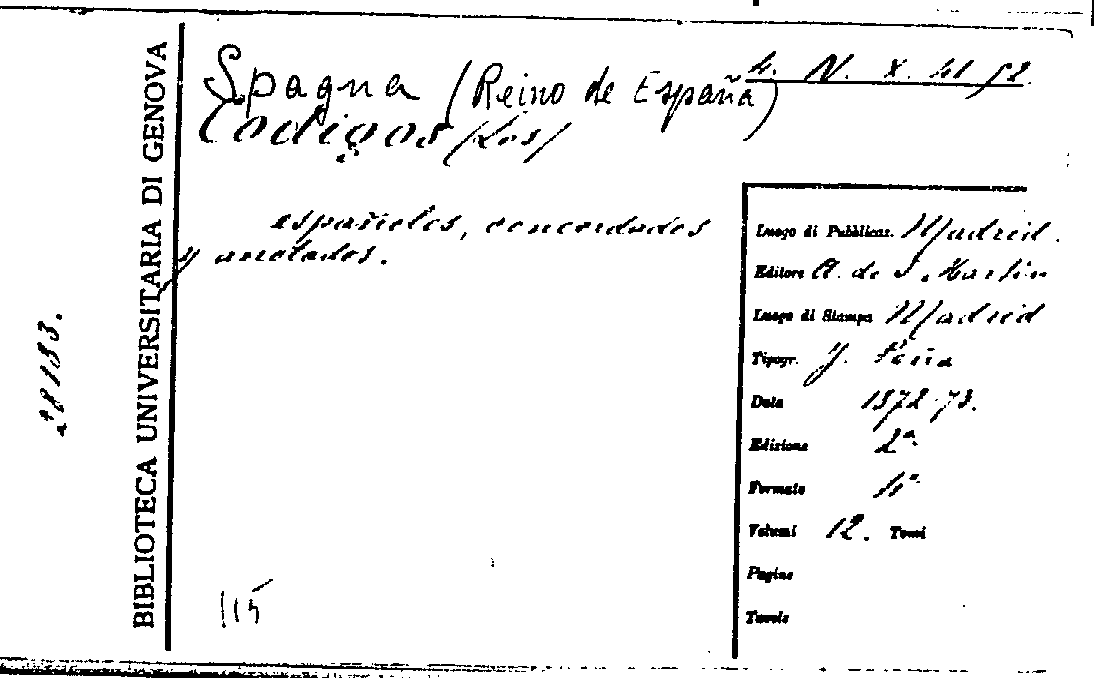 BIBLIOTECA UNIVERSITARIA DI GENOVA
28133.
4. N. X. 41 52.
Spagna (Reino de España)
Codigos (Los)
españoles, concordados
y anotados.
Luogo di Pubblicaz. Madrid.
Editore A. de S. Martin
Luogo di Stampa Madrid
Tipogr. J. Peña
Data 1872-73.
Edizione 2ª
Formato 4°
Volumi 12. Tomi
Pagine
Tavole
115